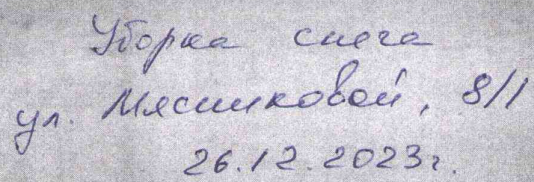 Уборка снега
ул. Мясниковой, 8/1
26.12.2023г.